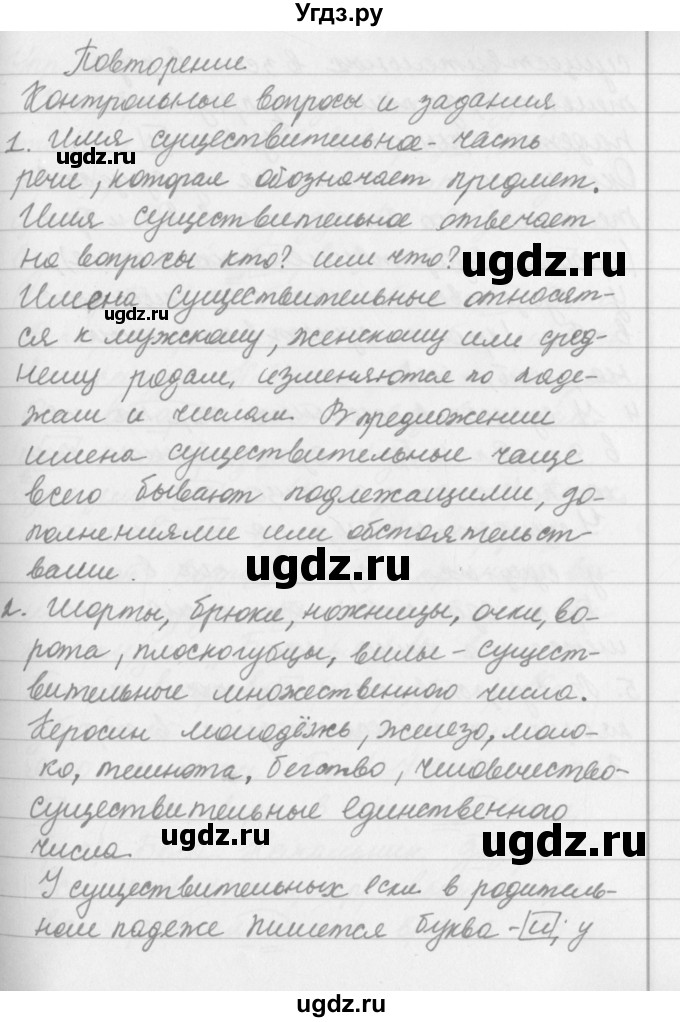 Угдз.ру
Повторение
Контрольные вопросы и задания
1. Имя существительное - часть
речи, которая обозначает предмет.
Имя существительное отвечает
на вопросы кто? или что?
Имена существительные относят-
ся к мужскому, женскому или сред-
нему родам, изменяются по паде-
жам и числам. В предложении
имена существительные чаще
всего бывают подлежащими, до-
полнениями или обстоятельст-
вами.
2. Шорты, брюки, ножницы, очки, во-
рота, плоскогубцы, вилы - сущест-
вительные множественного числа.
Керосин молодёжь, железо, моло-
ко, темнота, бегство, человечество-
существительные единственного
числа.
У существительных если в родитель-
ном падеже пишется буква - и, у
ugdz.ru
ugdz.ru
ugdz.ru
ugdz.ru
ugdz.ru
ugdz.ru
ugdz.ru
ugdz.ru
ugdz.ru